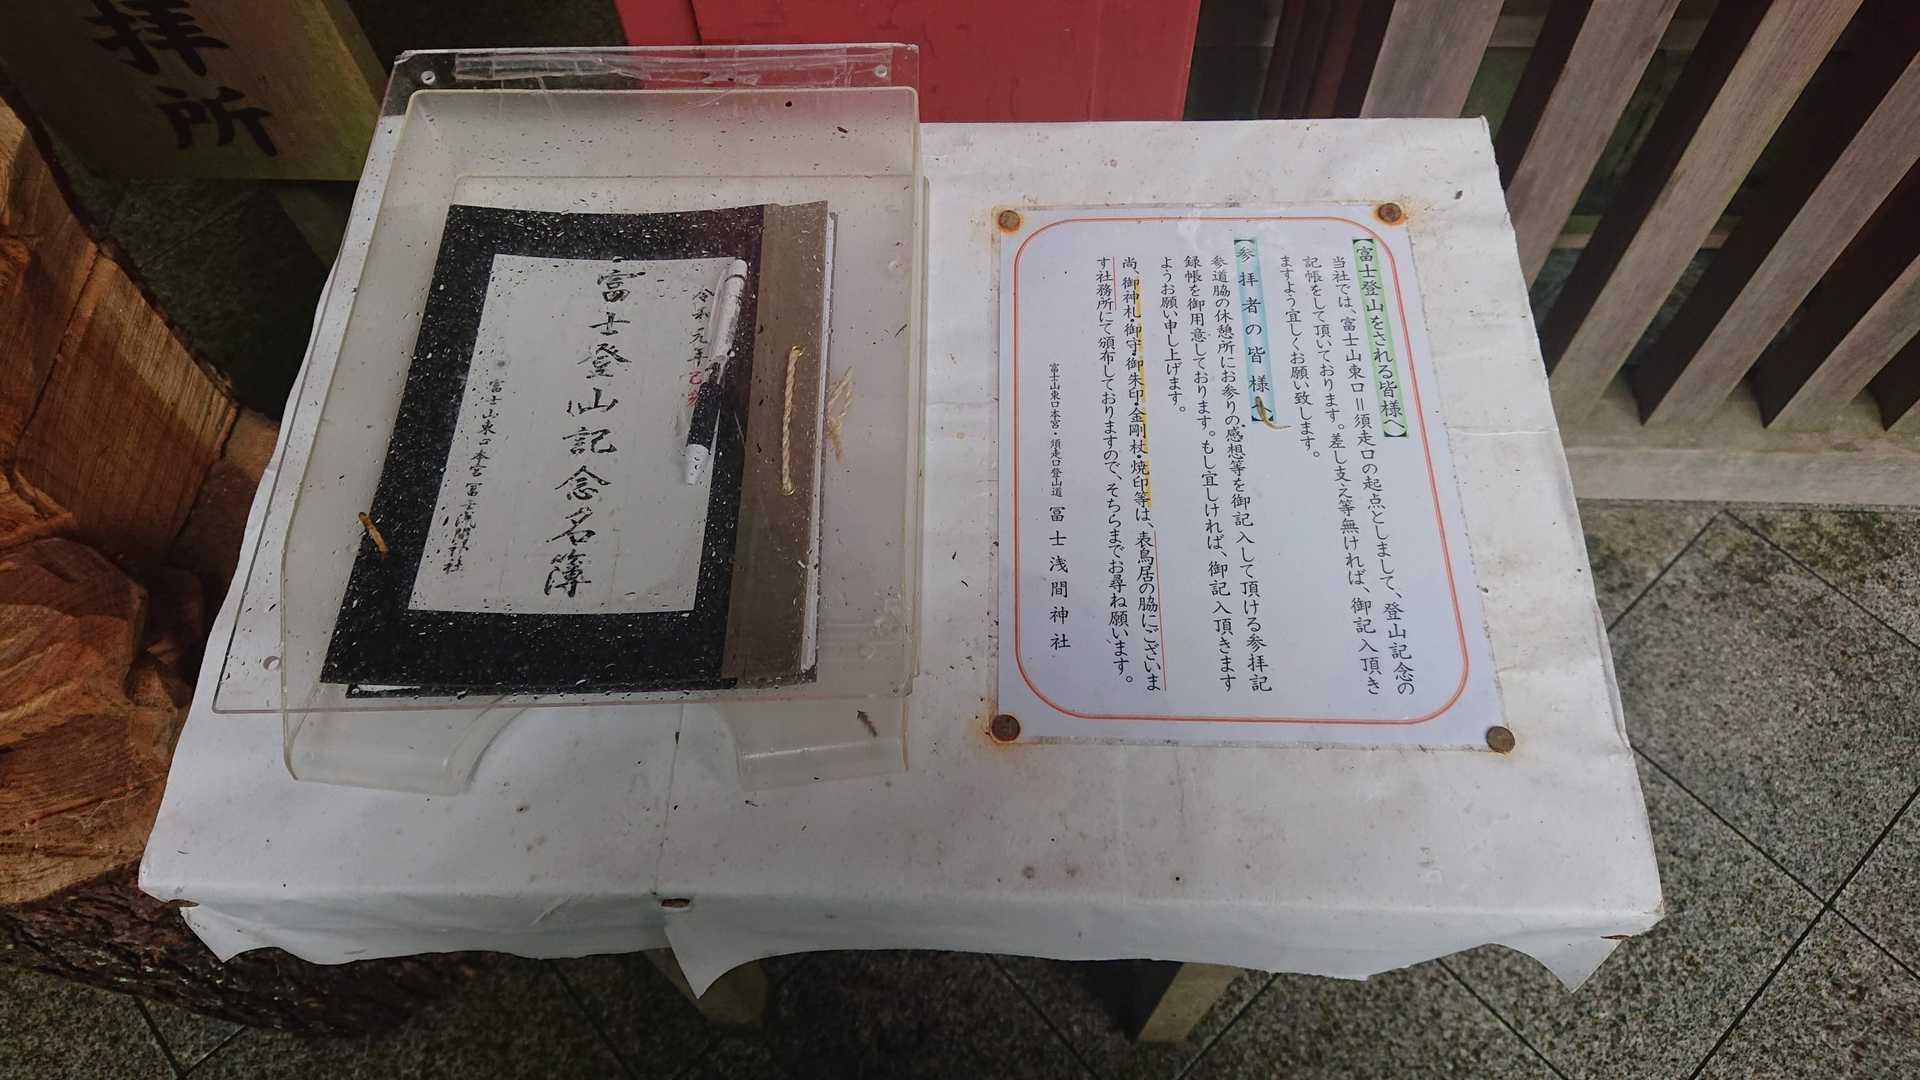 拝所
令和元年
乙亥
富士登山記念名簿
富士山東口本宮 冨士浅間神社
【富士登山をされる皆様へ】
当社では、富士山東口＝須走口の起点としまして、登山記念の
記帳をして頂いております。差し支え等無ければ、御記入頂き
ますよう宜しくお願い致します。
【参拝者の皆様へ】
参道脇の休憩所にお参りの感想等を御記入して頂ける参拝記
録帳を御用意しております。もし宜しければ、御記入頂きます
ようお願い申し上げます。
尚、御神札・御守・御朱印・金剛杖・焼印等は、表鳥居の脇にございま
す社務所にて頒布しておりますので、そちらまでお尋ね願います。
富士山東口本宮・須走口登山道 冨士浅間神社